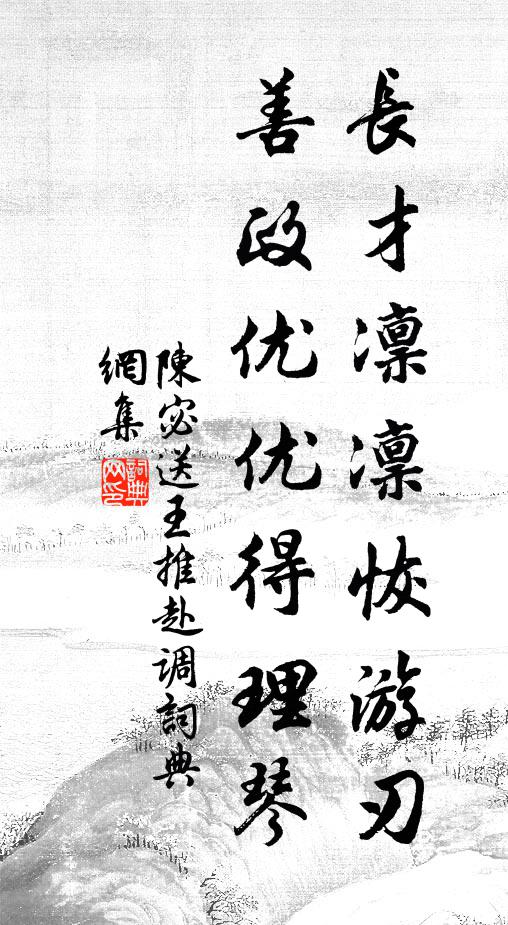 長才凛凛恢游刃
善政优优得理琴
陳宓送王推赴调詞典
網集
詞典网印